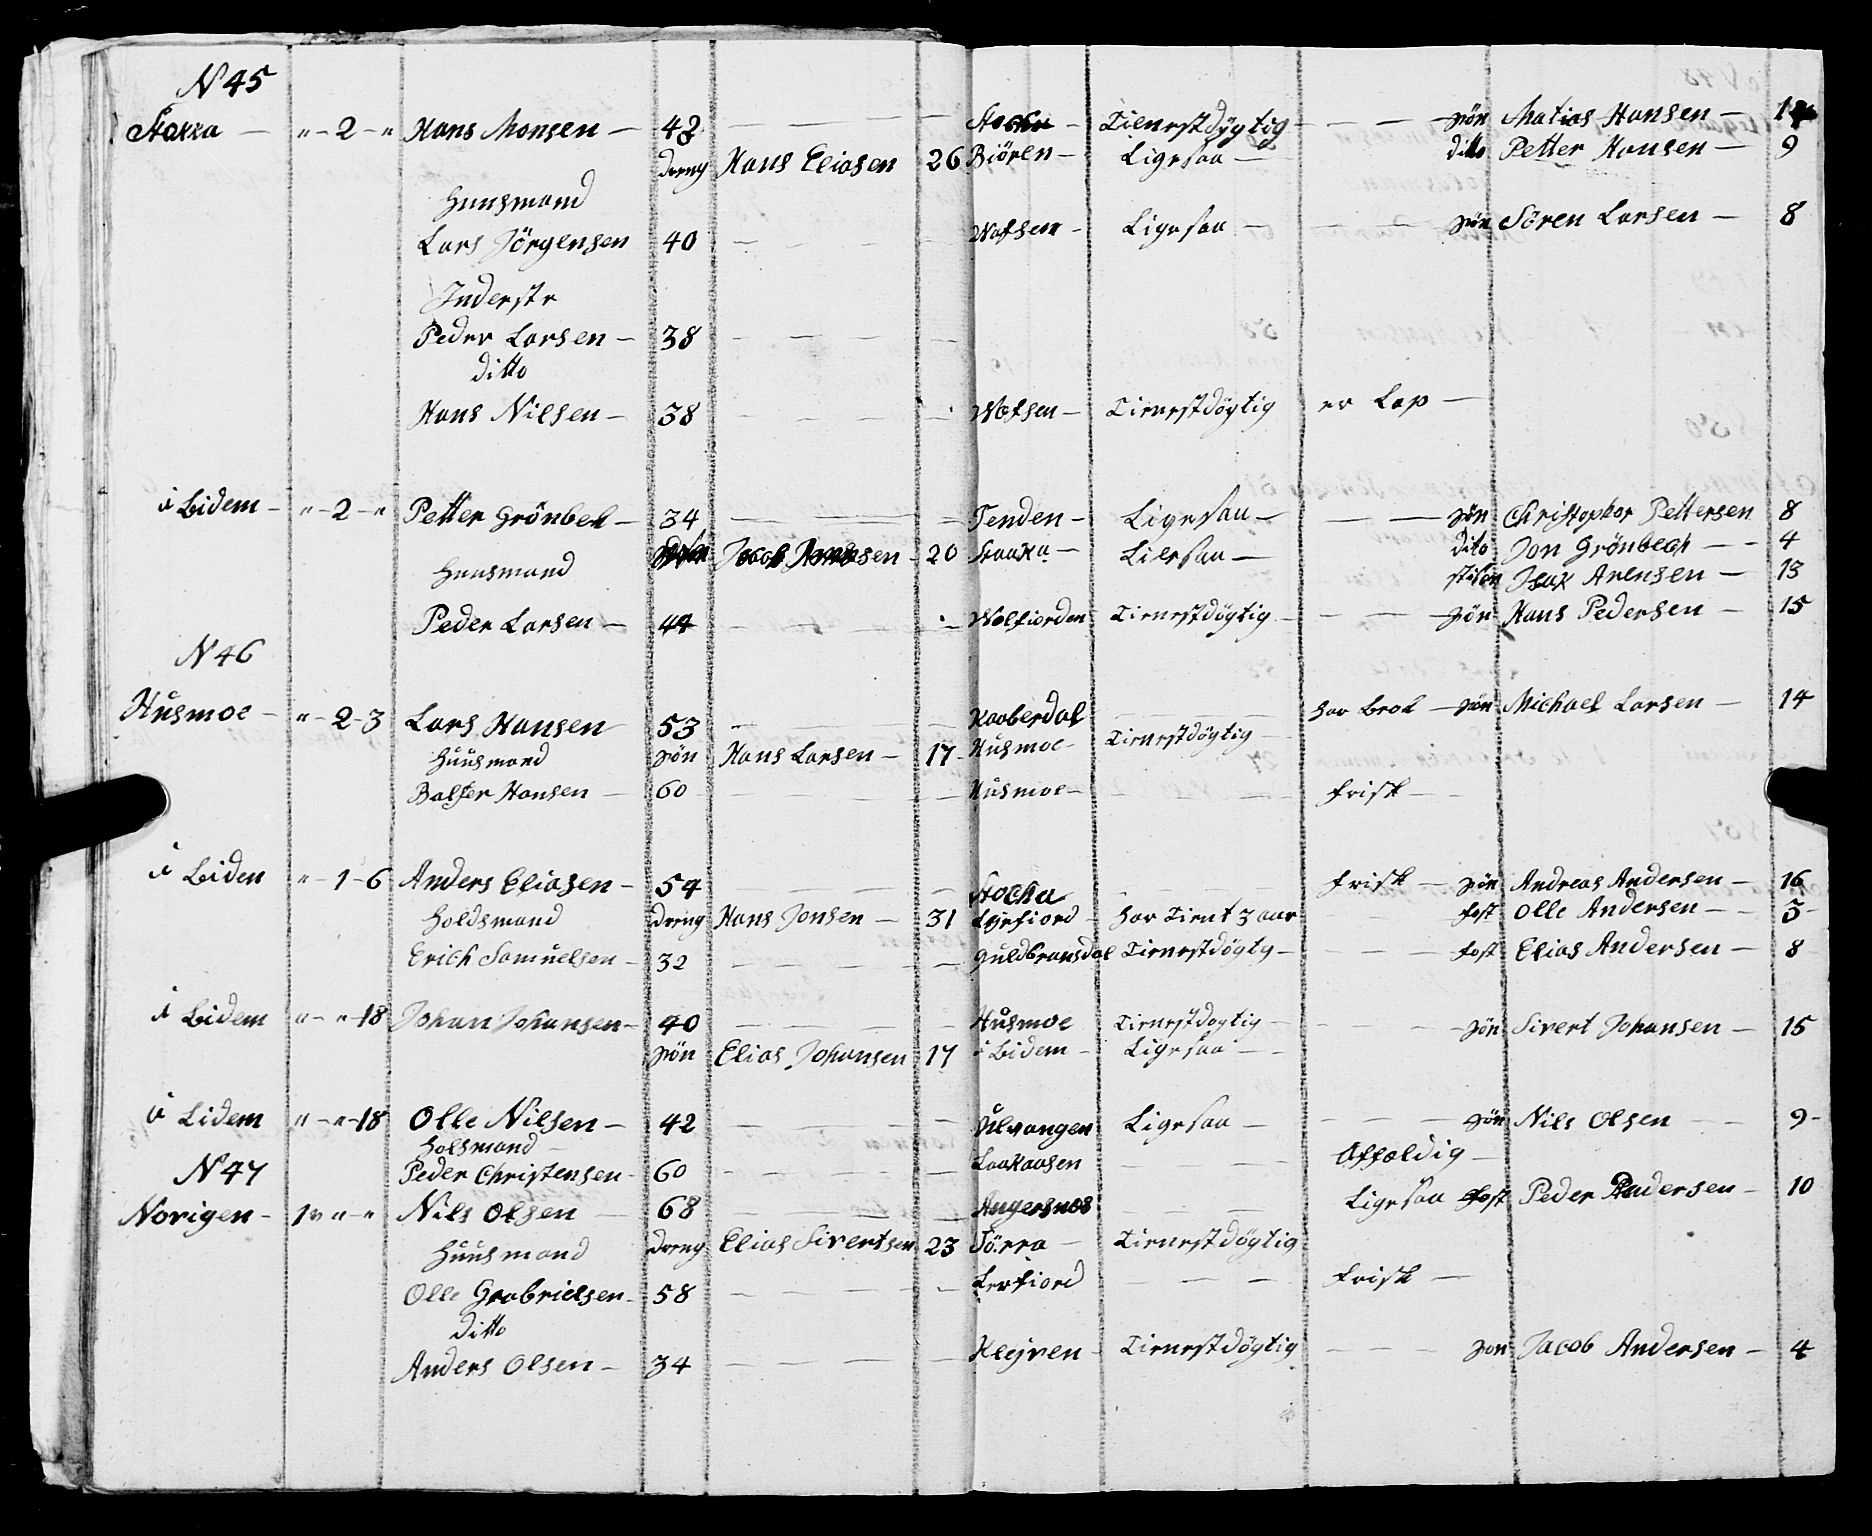 N 45
Stokka — " - 2 - " Hans Monsen — 42 — — — Tienestdygtig — — søn Matias Hansen —
dreng Hans Eliasen 26 Biören — Ligesaa — ditto Petter Hansen — 9
Huusmand
Lars Jörgensen 40 — Ligesaa — — — søn Sören Larsen — 8
Inderste
Peder Larsen — 38 — — —
ditto
Hans Nilsen — 38 — — — Wefsen — Tienestdögtig er Lap —
i Bidem — " - 2 - " Petter Grönbek — 34 — — — Tenden — Ligesaa — — — søn Christopher Pettersen 8
20 Ligesaa — dito Jon Grönbech — — 4
Huusmand stifsøn Isak Arensen — 13
Peder Larsen — 44 — — — Welfiorden Tienestdögtig — — søn Hans Pedersen — 15
N 46
Husmoe — " - 2 - 3 Lars Hansen 53 — — — Kaaberdal — har brok — søn Michael Larsen — 14
Huusmand søn Hans Larsen — 17 Husmoe — Tienestdögtig —
Balser Hansen — 60 — — — Husmoe — — — frisk —
i Biden " - 1 - 6 Anders Eliasen — 54 — — — — frisk — søn Andreas Andersen — 16
Holdsmand dreng Hans Jonsen — 31 Lerfiord — har Tient 3 aar fost Olle Andersen — — 3 -
Erich Samuelsen — 32 — — — Guldbransdal Tienestdögtg — — — fost Elias Andersen — 8
i Bidem " - " - 18 Johan Johansen — 40 — — — Husmoe Tienestdogtig — — søn Sivert Johansen — 15
søn Elias Johansen 17 i Bidem — Ligesaa — —
i Lidem " - " - 18 Olle Nilsen — 42 — — — Ulvangen Ligesaa — — — søn Nils Olsen — — 9 -
Holsmand —
N 47 Peder Christensen — 60 — — — — Affældig —
Norigen — 1 v " - " Nils Olsen — 68 — — — Angersnes — — Ligesaa fost Peder Andersen — 10
Huusmand dreng Elias Sivertsen 23 Sörra — Tienestdögtig
Olle Gabrielsen — 58 — — — Lerfiord — — — frisk —
ditto
Anders Olsen — 34 — — — Tienestdögtig — — — søn Jacob Andersen — 4